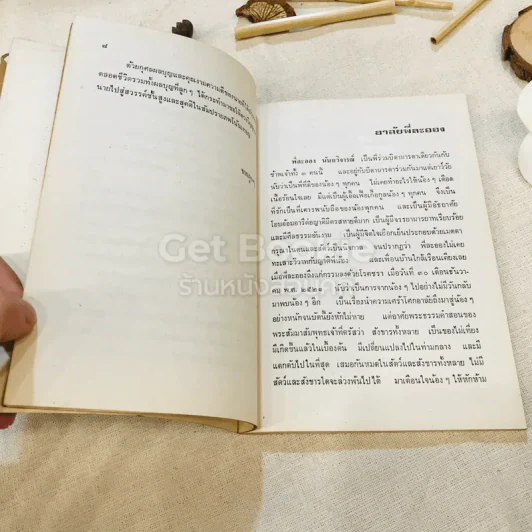 ๘
ด้วยกุศลผลบุญและคุณงามความดี
ตลอดชีวิตรวมทั้งผลบุญที่ลูก ๆ ได้กระทำมาขอให้
นายไปสู่สวรรค์ชั้นสูงและสุคติในสัมปรายภพ
อาลัยพี่ละออง
พี่ละออง นันทวิจารณ์ เป็นพี่ร่วมบิดามารดาเดียวกันกับ
ข้าพเจ้าทั้ง ๓ คนนี้ และอยู่กับบิดามารดาร่วมกันมาแต่เยาว์วัย
นับว่าเป็นพี่ที่ดีของน้อง ๆ ทุกคน ไม่เคยทำอะไรให้น้อง ๆ เดือด
เนื้อร้อนใจเลย มีแต่เป็นผู้เอื้อเฟื้อเกื้อกูลน้อง ๆ ทุกคน จึงเป็น
พี่รักเป็นที่เคารพนับถือของน้องทุกคน และเป็นผู้มีอัธยาศัย
โอบอ้อมอารีต่อญาติมิตรสหายดีมาก เป็นผู้มีจรรยามารยาทเรียบร้อย
และมีศีลธรรมอันงาม เป็นผู้มีจิตใจเยือกเย็นประกอบด้วยเมตตา
กรุณาในคนและสัตว์เป็นนิจ จนปรากฏว่า พี่ละอองไม่เคย
ทะเลาะวิวาทกับญาติพี่น้อง และเพื่อนบ้านใกล้เรือนเคียงเลย
เมื่อพี่ละอองถึงแก่กรรมลงด้วยโรคชรา เมื่อวันที่ ๓๐ เดือนธันวา-
คม พ.ศ. ๒๕๒๑ นับว่าเป็นการจากน้อง ๆ ไปอย่างไม่มีวันกลับ
มาพบน้อง ๆ อีก เป็นเรื่องนำความเศร้าโศกอาลัยถึงมาสู่น้อง ๆ
อย่างหนักจนบัดนี้ยังหักไม่หาย แต่อาศัยพระธรรมคำสอนของ
พระสัมมาสัมพุทธเจ้าที่ตรัสว่า สังขารทั้งหลาย เป็นของไม่เที่ยง
มีเกิดขึ้นแล้วในเบื้องต้น มีเปลี่ยนแปลงไปในท่ามกลาง และมี
แตกดับไปในที่สุด เสมอกันหมดในสัตว์และสังขารทั้งหลาย ไม่มี
สัตว์และสังขารใดจะล่วงพ้นไปได้ มาเตือนใจน้อง ๆ ให้หักห้าม
ร้านหนังสือ